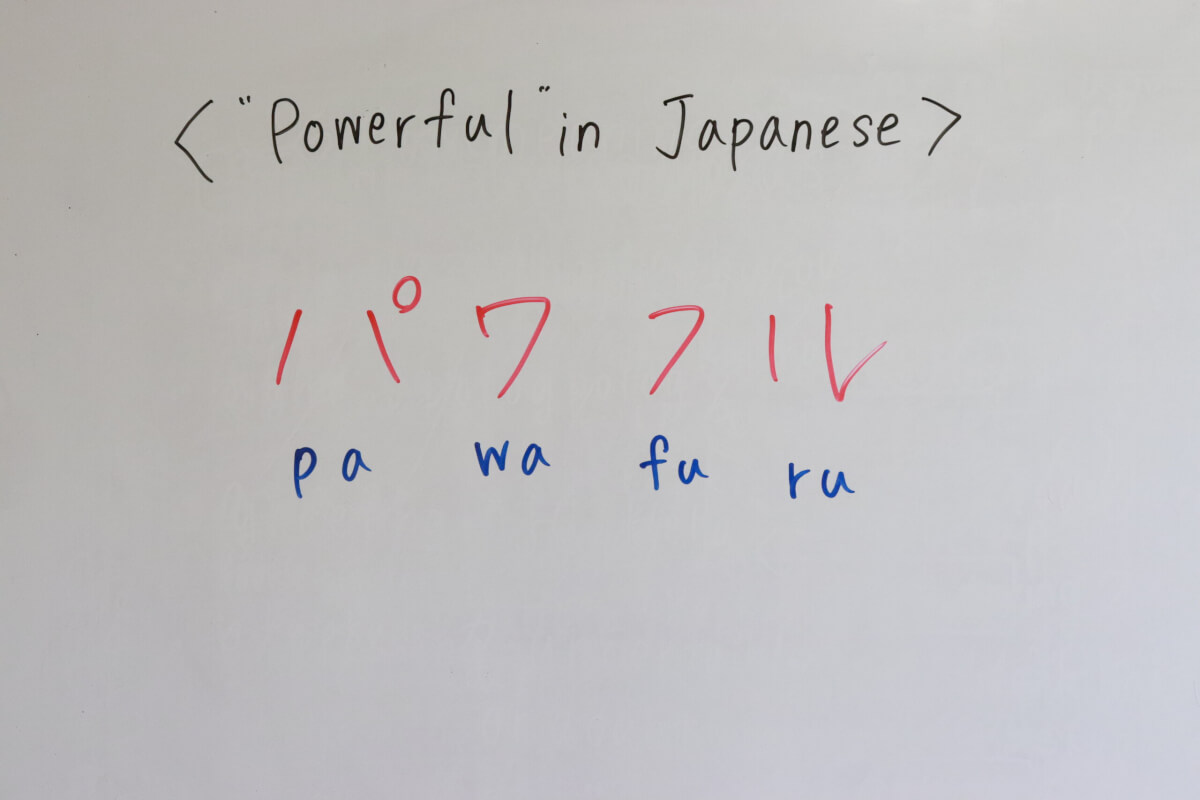 <"Powerful" in Japanese>
パワフル
pa wa fu ru